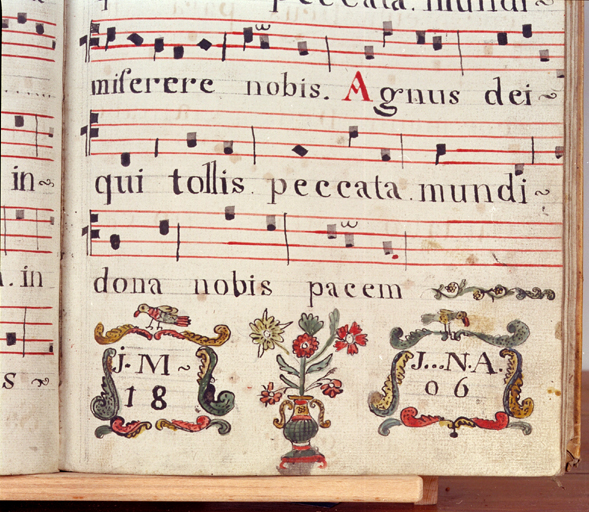 peccata. mundi
miſerere nobis. Agnus dei
in
qui tollis peccata. mundi
. in
dona nobis pacem
s
j. M
18
J...N.A.
06